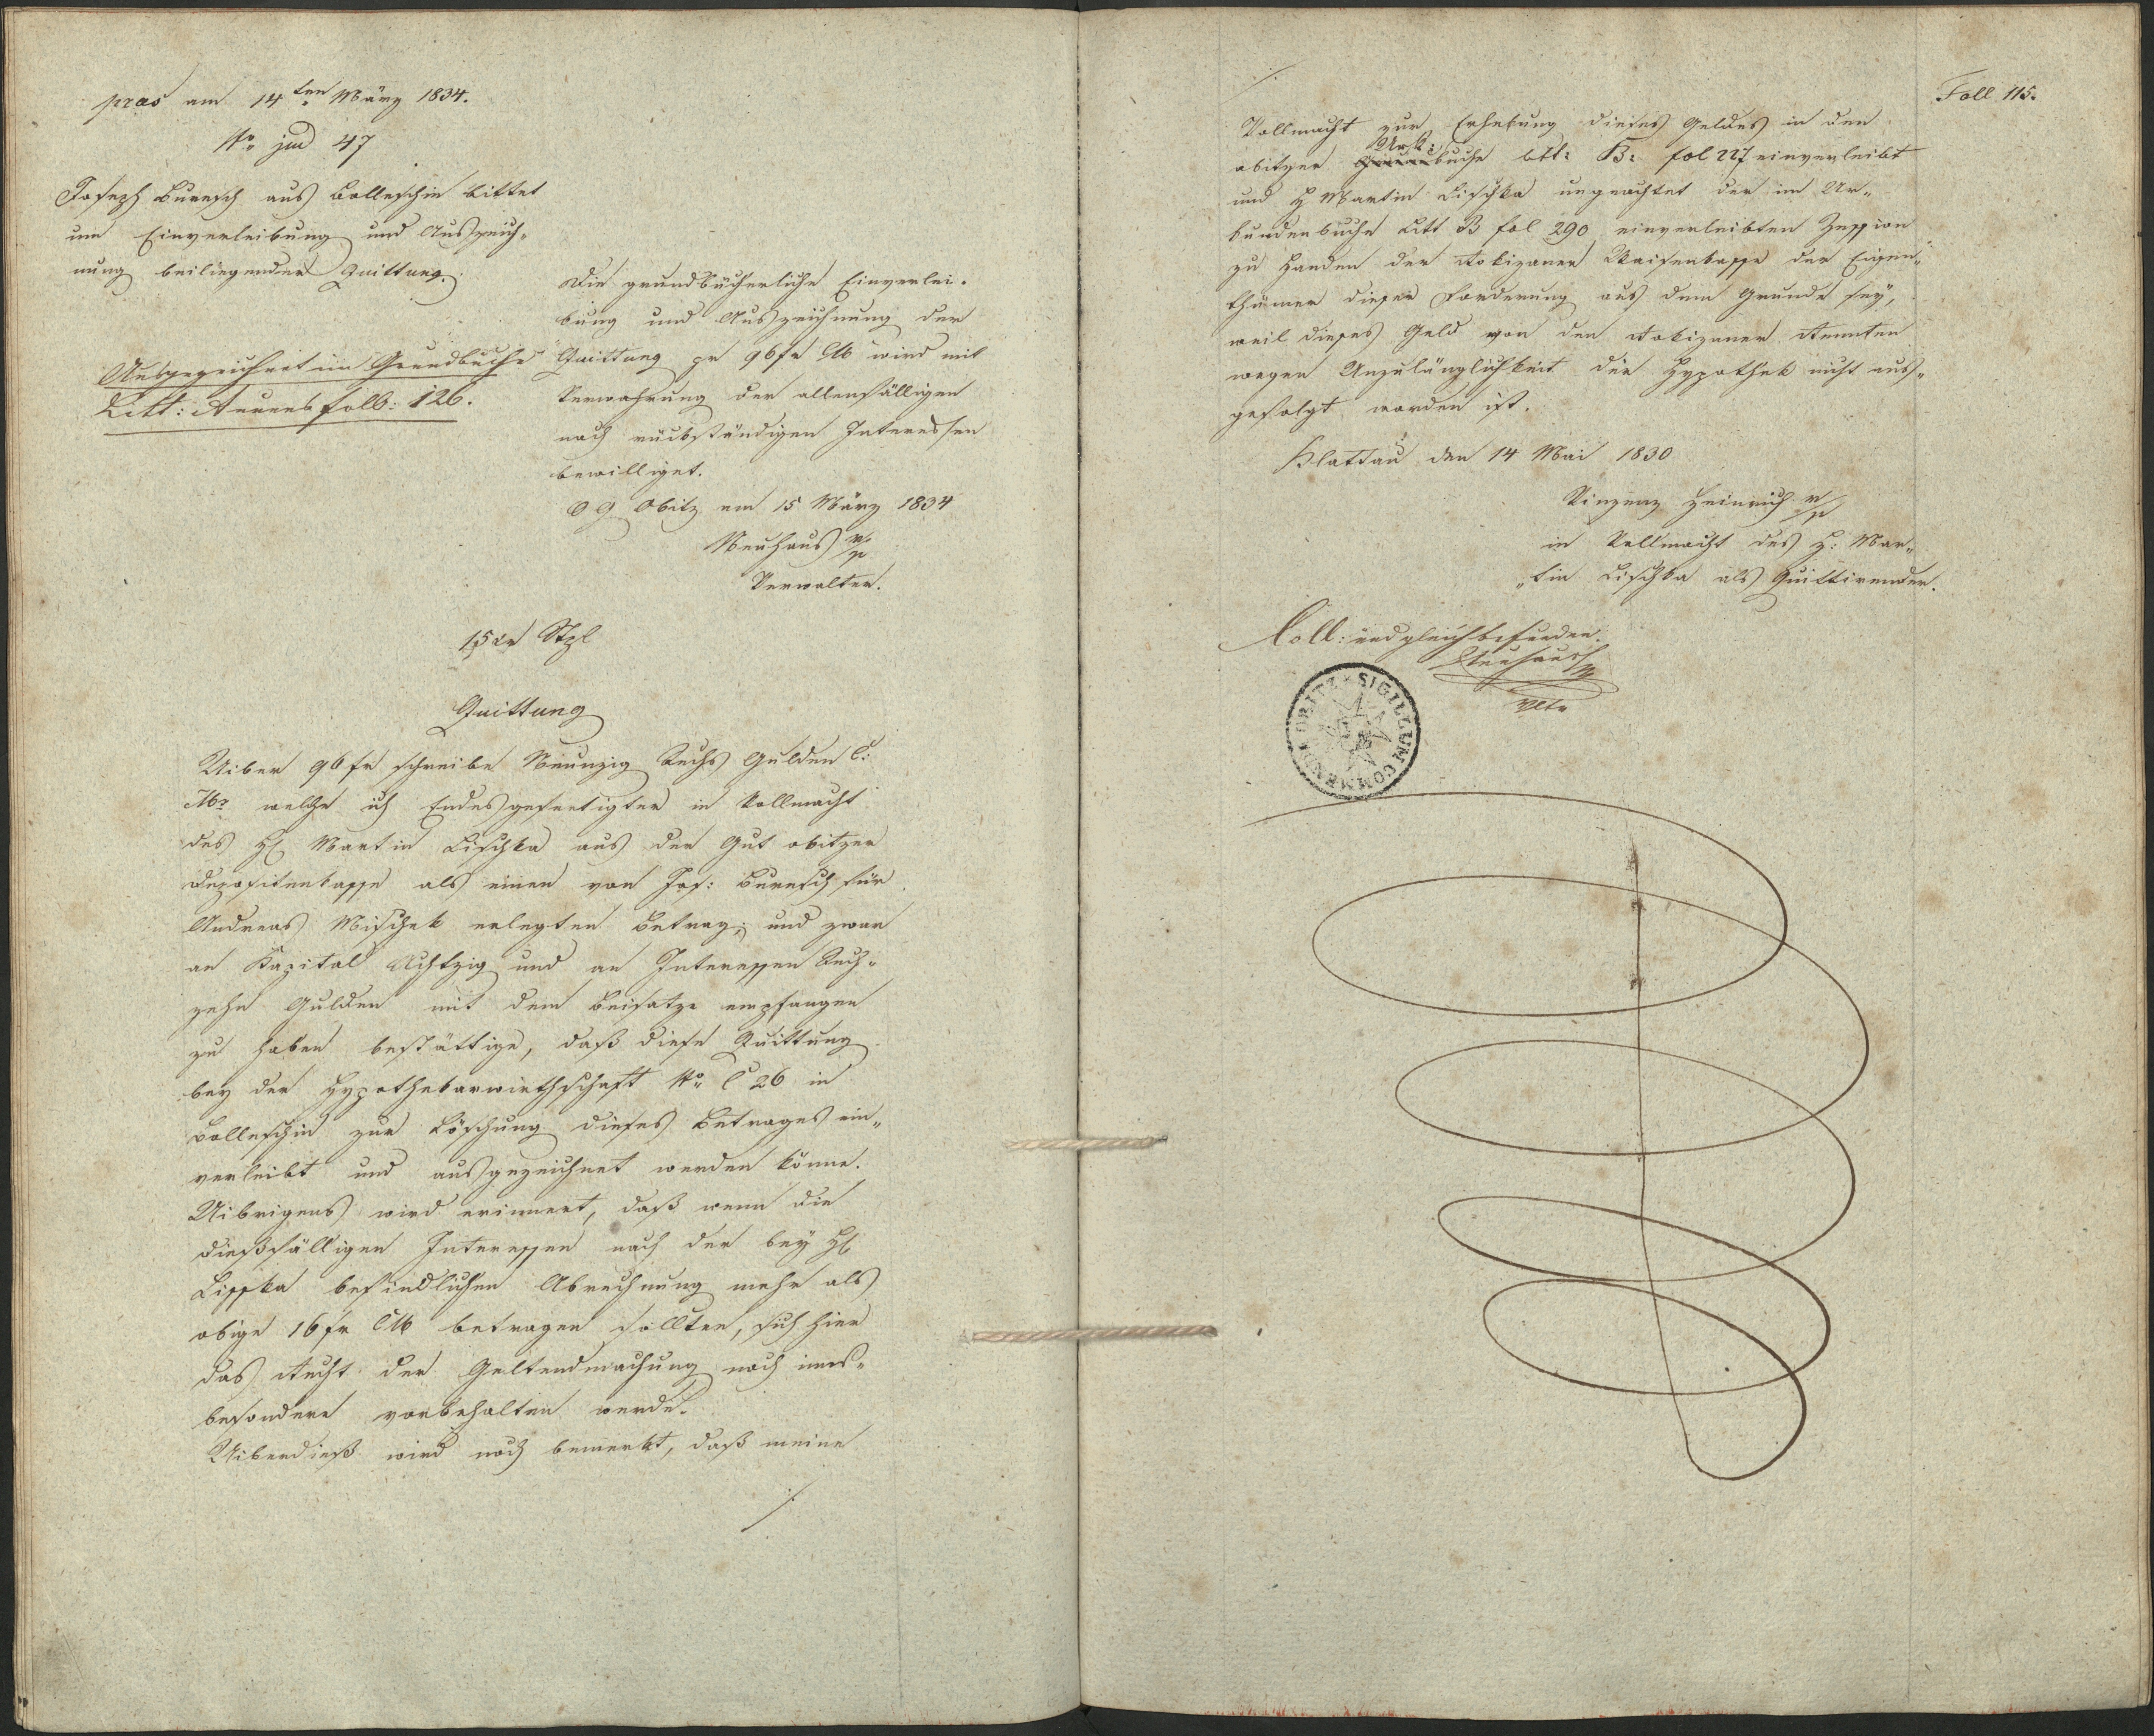 pras am 14ten März 1834.
No jud 47
Joseph Buresch aus Bolleschin bittet
um Einverleibung und Auszeich„
nung beiliegender Quittung.
Ausgezeichnet im Grundbuche
Litt: A neues foll: 126.
Die grundbücherliche Einverlei„
bung und Auszeichnung der
Quittung pr 96 fr CM wird mit
Verwahrung der allenfälligen
noch rückständigen Interessen
bewilliget.
OG Obitz am 15 März 1834
Neuhaus m/p
Verwalter.
15 xr Stpl
Quittung
Uiber 96 fr schreibe Neunzig Sechs Gulden C:
M: welche ich Endesgefertigter in Vollmacht
des H Martin Lischka aus der Gut obitzer
Depositenkasse als einen von Jos: Buresch für
Andreas Mischek erlegten Betrag; und zwar
an Kapital Achtzig und an Interessen Sech„
zehn Gulden mit dem Beisatze empfangen
zu haben bestättige, daß diese Quittung
bey der Hypothekarwirthschaft No C 26 in
Bolleschin zur Löschung dieses Betrages ein„
verleibt und ausgezeichnet werden könne.
Uibrigens wird erinnert, daß wenn die
dießfälligen Interessen nach der bey H
Lisska befindlichen Abrechnung mehr als
obige 16 fr CM betragen sollten, sich hier
das Recht der Geltendmachung noch ins„
besondere vorbehalten werde.
Uiberdieß wird noch bemerkt, daß meine
./.
Foll 115.
./.
Vollmacht zur Erhebung dieses Geldes in den
Urk:
obitzer buche Ltt: B: fol 227 einverleibt
und H Martin Lischka ungeachtet der im Ur„
kundenbuche Litt B fol 290 einverleibten Zession
zu Handen der Rokizaner Waisenkasse der Eigen„
thümer dieser Forderung aus dem Grunde sey,
weil dieses Geld von den Rokizaner Renten
wegen Unzulänglichkeit der Hypothek nicht aus„
gefolgt worden ist.
Klattau den 14 Mai 1830
Vinzenz Heinrich m/p
in Vollmacht des H: Mar„
„tin Lischka als Quittirender.
Coll: und gleich befunden.
Neuhaus
Vltr
SIGILLUM COMMENDÆ OBITZ